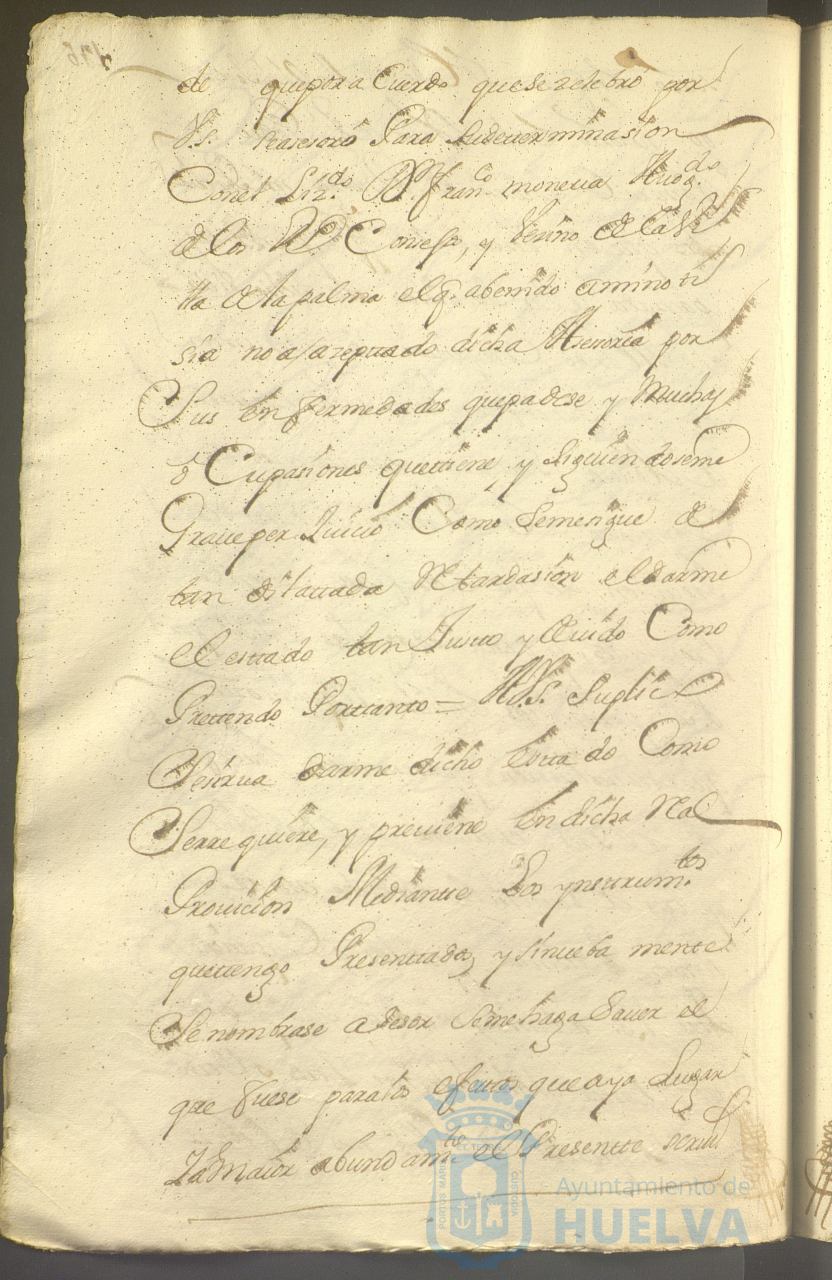 de quepora Cuerdo quese zelebro por
Vs. seasesoró Para sudetterminasion
Conel Lizdo. Dn. Franco. monetta Abogdo.
de los Rs. Consess, y Vesino de la Vi
lla de la palma elq. abenido aminoti
sia no a azepttado dicha Asesoria por
Sus enfermedades quepadese y Muchas
o Cupasiones quettiene, y siguiendoseme
Grave per Juicio Como semesigue de
tan dilattada Retardasion eldarme
el esttado tan Justto y devido Como
Prettendo Porttanto = A V.S. Suplico
Sesirva darme dicho estta do Como
Serre quiere, y previene en dicha Real
Provision Mediantte Los ynsttrumtos.
quettengo Presenttados, y sinueba mentte
Se nombrase a Sesor semehaga saver el
que fuese paralos efecttos que aya Lugar
Ya Maior abundamto. el Presentte scriv.
Ayuntamiento de
HUELVA